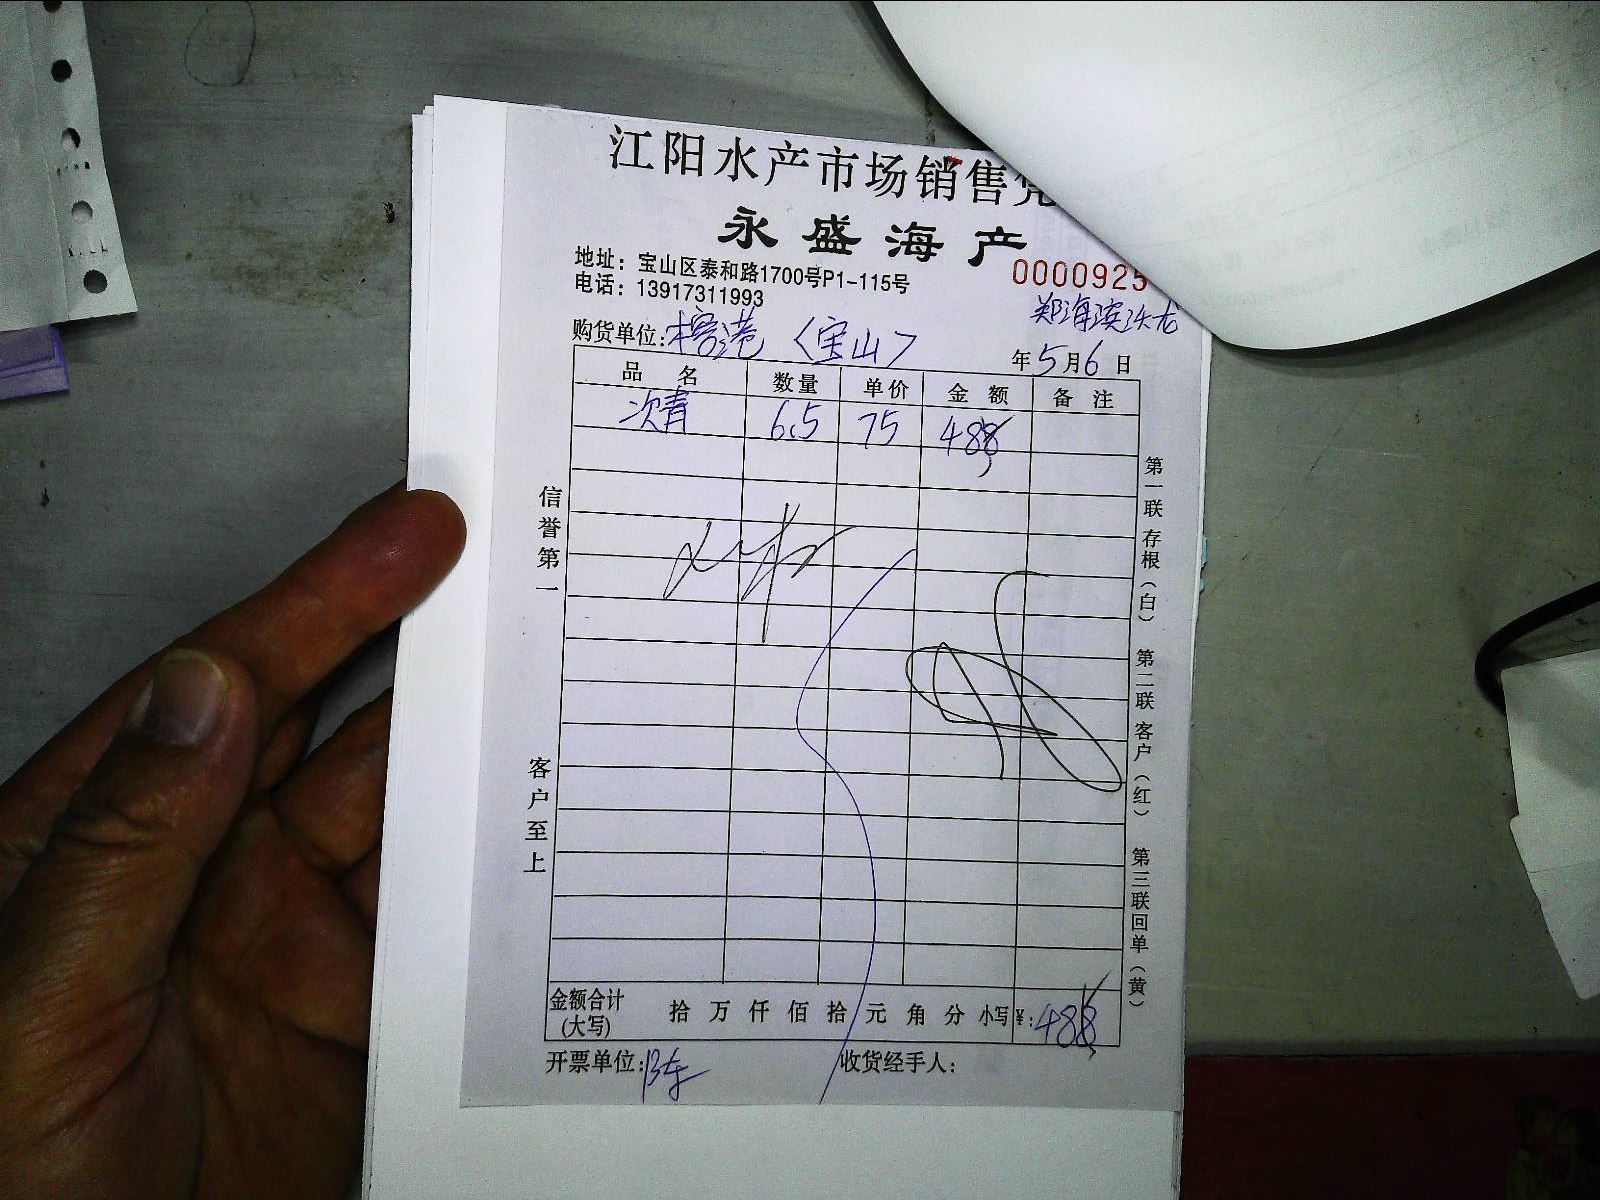 江阳水产市场销售凭
永盛海产
地址：宝山区泰和路1700号P1-115号
0000925
电话：13917311993
郑海滨
购货单位：榕港（宝山）
年5月6日
品名 数量 单价 金额 备注
次青 6.5 75 488
信誉第一
客户至上
第一联存根（白） 第二联客户（红） 第三联回单（黄）
金额合计(大写) 拾 万 仟 佰 拾 元 角 分 小写¥：488
开票单位：陈 收货经手人：